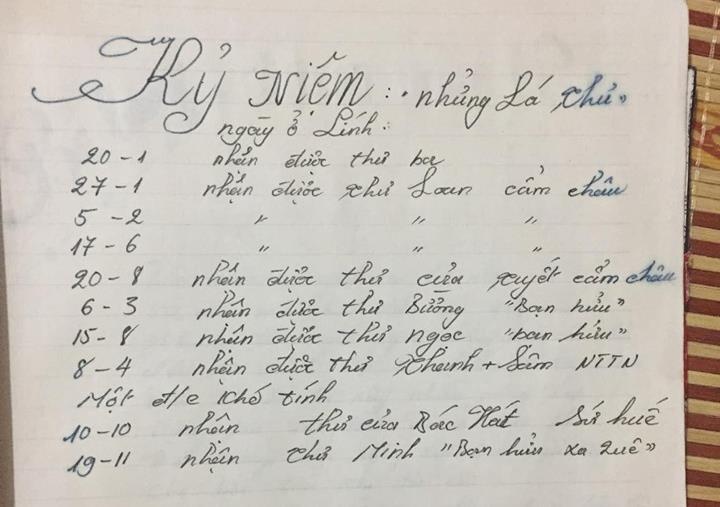 Kỷ Niếm: "những Lá thư"
ngày ở Lính:
20-1 nhận được thư ba
27-1 nhận được thư Loan cẩm châu
5-2 " " "
17-6 " " "
20-8 nhận được thư của quyết cẩm châu
6-3 nhận được thư Bưởng "Bạn hửu"
15-8 nhận được thư ngọc "bạn hửu"
8-4 nhận được thư thanh + Sâm NTTN
Một đ/c khó tính
10-10 nhận thư của Bác Hát Sứ huế
19-11 nhận thư Minh "Bạn hửu xa quê"